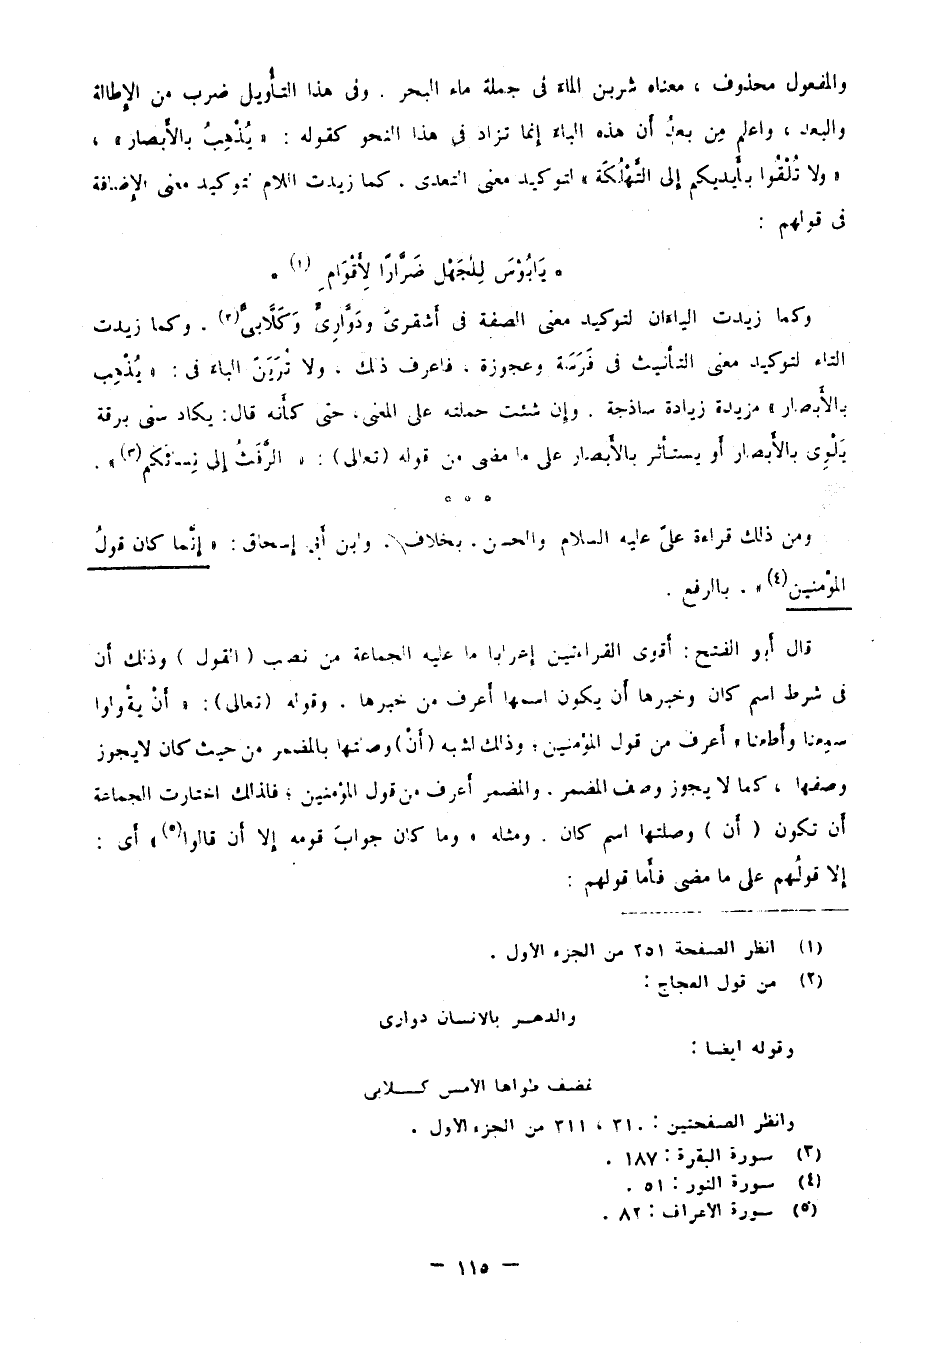 والمفعول محذوف ، معناه شربن الماء فى جملة ماء البحر . وفى هذا التأويل ضرب من الإطالة
والبعد ، واعلم مِن بعدُ أن هذه الباء إنما تزاد فى هذا النحو كقوله : « يُذْهِبُ بالأبصار » ،
« ولا تُلْقُوا بأَيديكم إلى التَّهْلُكَة » لتوكيد معنى التعدى . كما زيدت اللام لتوكيد معنى الإضافة
فى قولهم :
* يَابُؤسَ لِلْجَهْلِ ضَرَّارًا لِأَقْوَامِ (١) *
وكما زيدت الياءان لتوكيد معنى الصفة فى أشقرىّ ودَوَّارِىٌّ وَكَلَّابىٌّ(٢) . وكما زيدت
التاء لتوكيد معنى التأنيث فى فَرَسَة وعجوزة ، فاعرف ذلك ، ولا تُرَيَنَّ الباء فى : « يُذْهِب
بالأَبصار » مزيدة زيادة ساذجة . وإن شئت حملته على المعنى، حتى كأنه قال: يكاد سنى برقة
يَلْوِى بالأَبصار أو يستأثر بالأَبصار على ما مضى من قوله (تعالى) : « الرَّفَثُ إلى نِسائكم(٣)» .
* * *
ومن ذلك قراءة علىّ عليه السلام والحسن ـ بخلاف ـ وابن أبى إسحاق : « إنَّما كان قولُ
المؤْمنين(٤)» . بالرفع .
قال أبو الفتح : أقوى القراءتين إعرابا ما عليه الجماعة من نصب ( القول ) وذلك أن
فى شرط اسم كان وخبرها أن يكون اسمها أعرف من خبرها . وقوله (تعالى) : « أَنْ يقُولوا
سمعنا وأطعنا » أعرف من قول المؤمنين ؛ وذلك لشبه (أَنْ) وصلتها بالمضمر من حيث كان لايجوز
وصفها ، كما لا يجوز وصف المضمر . والمضمر أعرف من قول المؤمنين ؛ فلذلك اختارت الجماعة
أن تكون ( أن ) وصلتها اسم كان . ومثله « وما كان جوابَ قومه إلا أن قالوا(٥)» أى :
إلا قولُهم على ما مضى فأما قولهم :
(١) انظر الصفحة ٢٥١ من الجزء الأول .
(٢) من قول العجاج :
والدهـر بالانسان دوارى
وقوله ايضا :
نضف طواها الأمس كـلابى
وانظر الصفحتين : ٣١٠ ، ٣١١ من الجزء الأول .
(٣) سورة البقرة : ١٨٧ .
(٤) سورة النور : ٥١ .
(٥) سورة الأعراف : ٨٢ .
– ١١٥ –